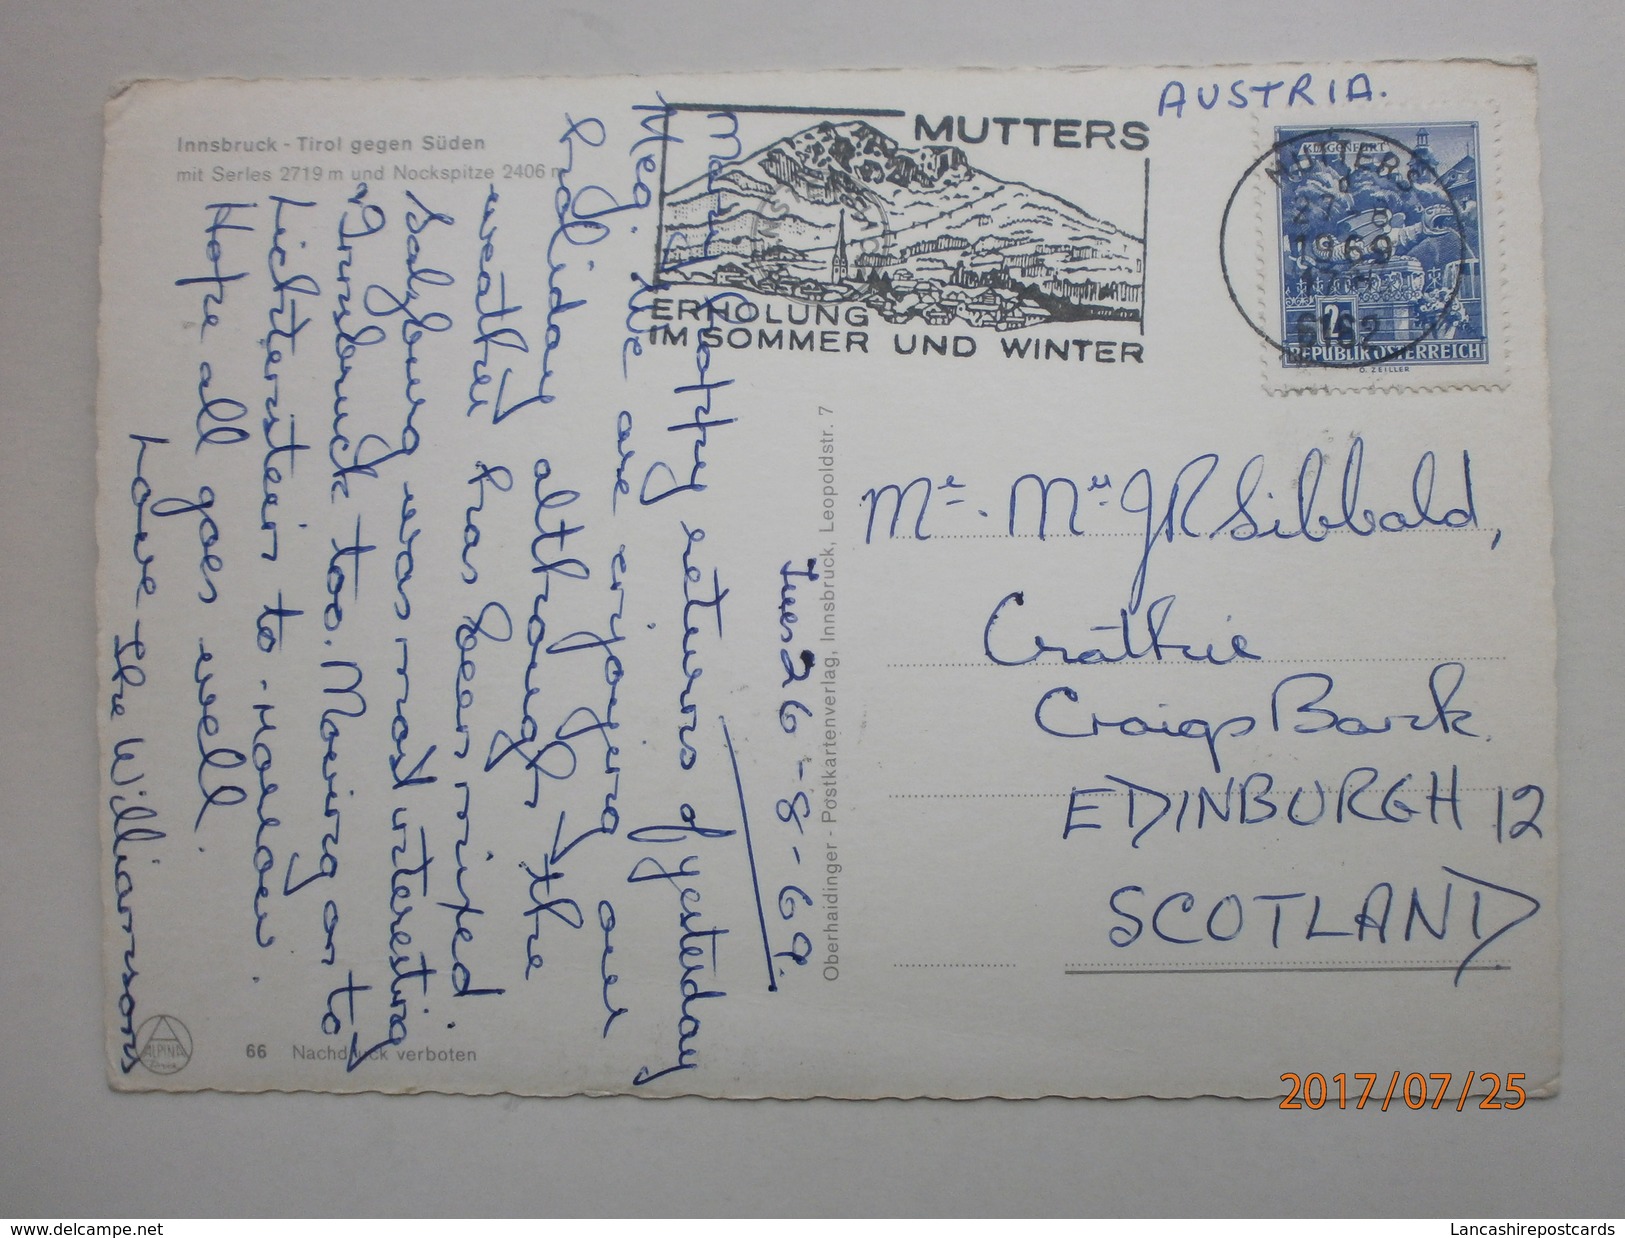 Innsbruck - Tirol gegen Süden
mit Serles 2719 m und Nockspitze 2406 m
AUSTRIA.
MUTTERS
ERHOLUNG
IM SOMMER UND WINTER
MUTTERS
1969
6162
KLAGENFURT
2
REPUBLIK ÖSTERREICH
O. ZEILLER
Tues 26-8-69.
Many happy returns of yesterday
Meg. We are enjoying our
holiday although the
weather has been mixed.
Salzburg was most interesting
& Innsbruck too. Moving on to
Lichtenstein to-morrow.
Hope all goes well.
Love the Williamsons
Mr. Mrs J R Sibbald,
Crathie
Craigs Bank.
EDINBURGH 12
SCOTLAND
Oberhaidinger - Postkartenverlag, Innsbruck, Leopoldstr. 7
ALPINA
66 Nachdruck verboten
2017/07/25
www.delcampe.net
Lancashirepostcards